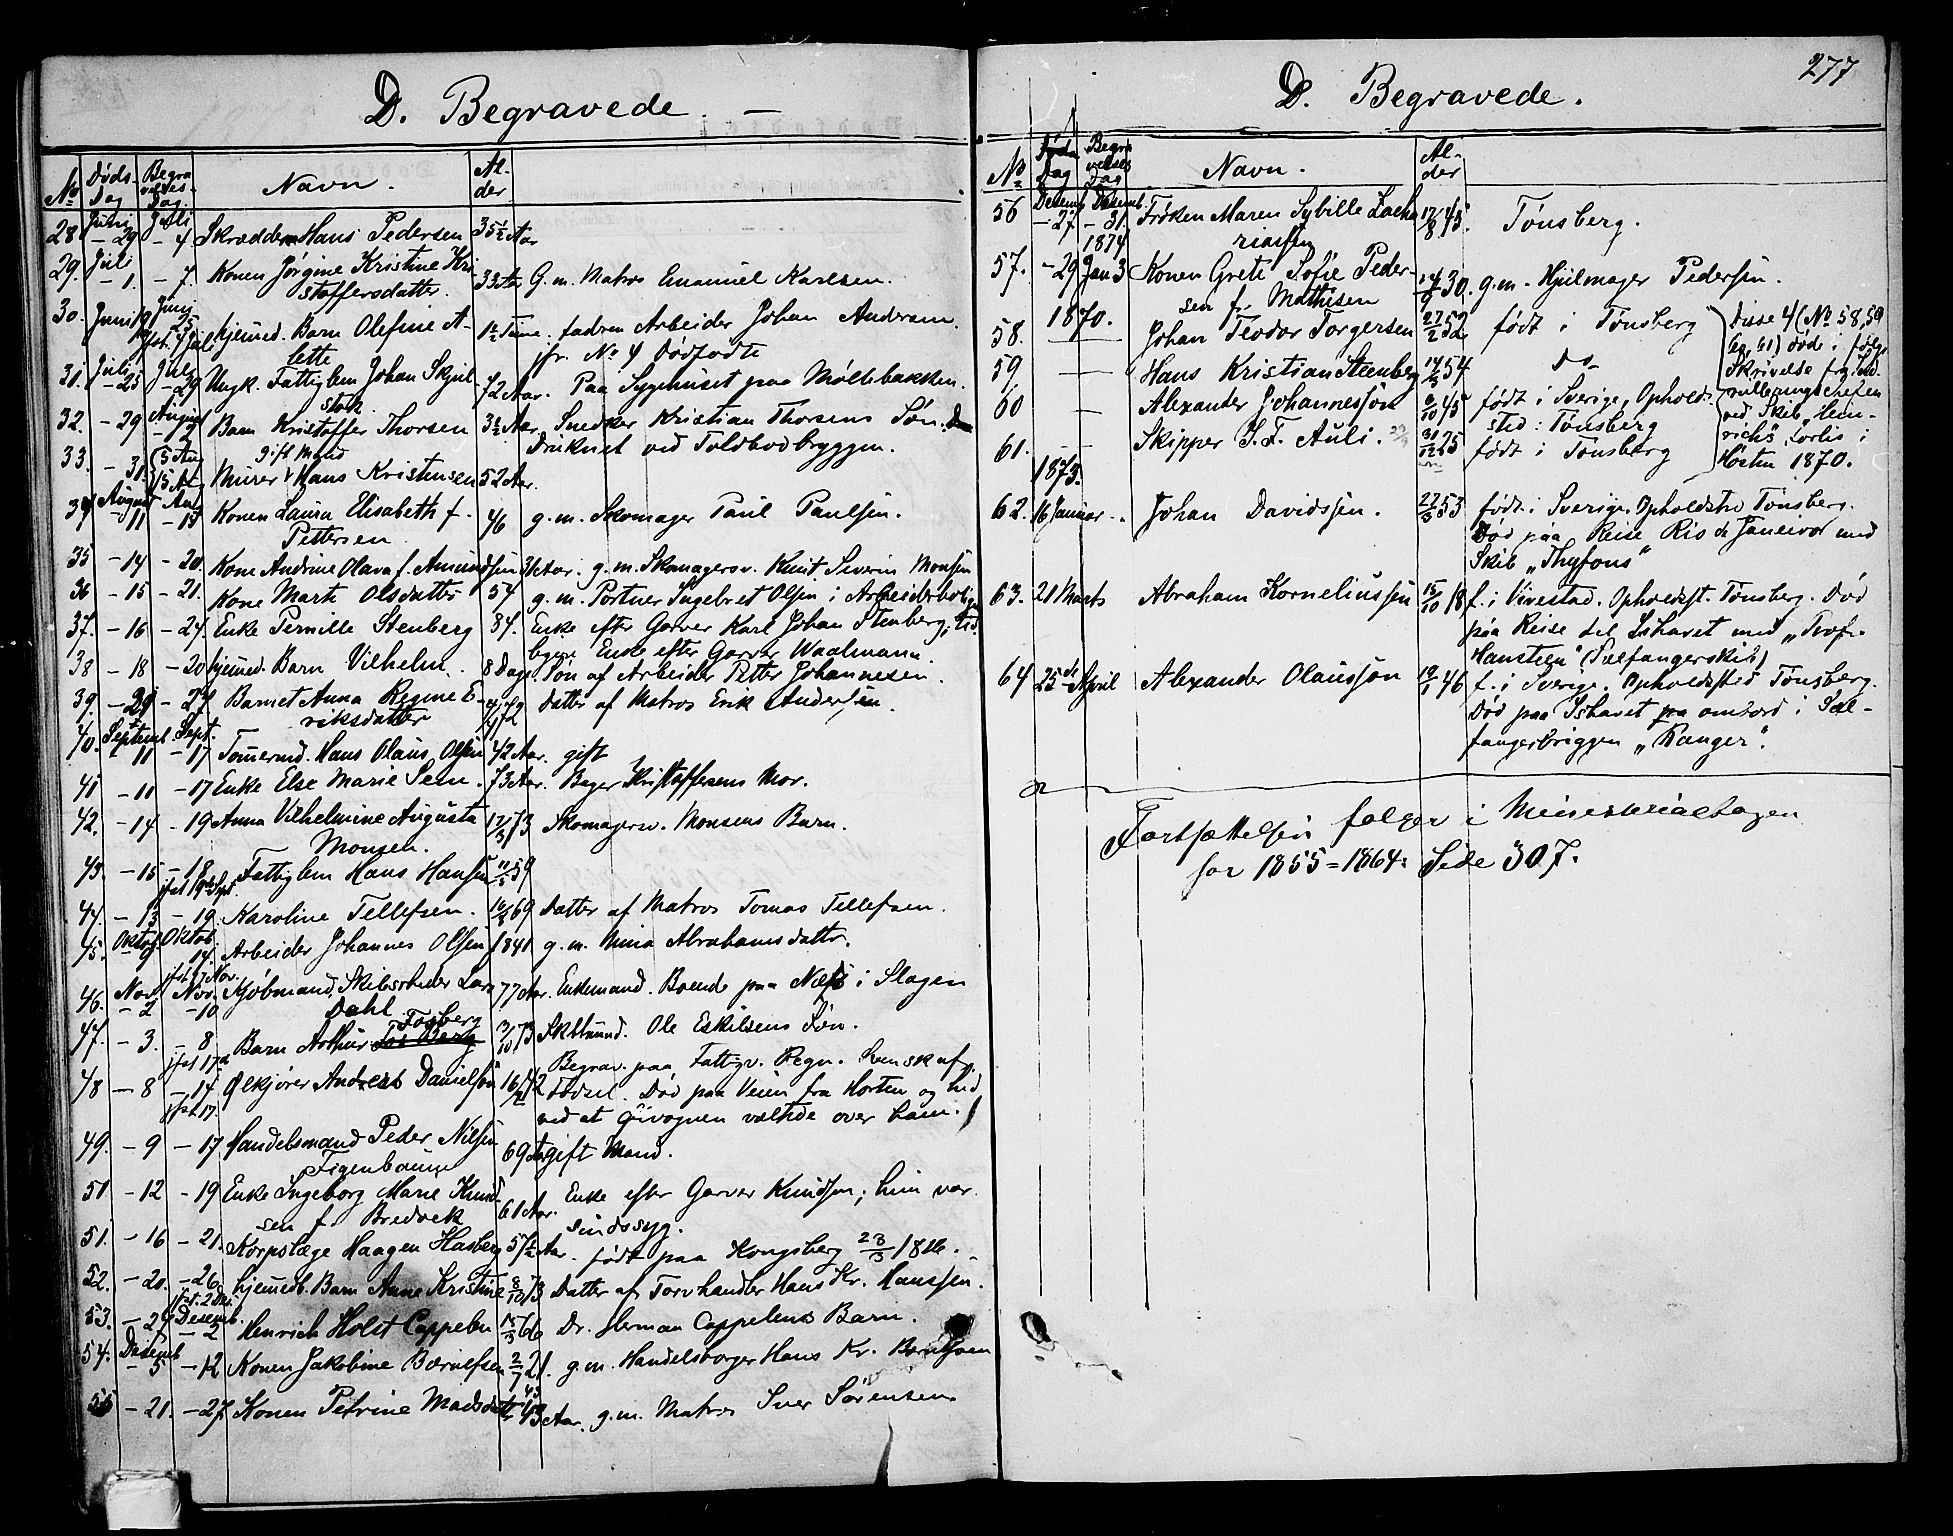 D. Begravede. —
No Døds- Dag Begravelses- Dag. Navn. Al- der
28. Juni - 29 Juli - 4 Skrædder Hans Pedersen 35½ Aar
29. Juli - 1. - 7 Konen Jørgine Kristine Kri-
stoffersdatter. 33 Aar G. m. Matros Emanuel Karlsen.
30. Juni Juni 25 hjemed. Barn Olefine A-
lette 1½ Time. fadren Arbeider Johan Andersen.
jfr. No 4 Dødfødte
31. Juli - 25 Juli - 29 Ungk. Fattiglem Johan Skjul-
stok. 72 Aar. Paa Sygehuset paa Møllebakken.
32. - 29 August - 2 Barn Kristoffer Thorsen 3½ Aar Snedker Kristian Thorsens Søn.
Druknet ved Toldbodbryggen.
33. - 31. 5 Aug gift Mand
Murer Hans Kristensen 52 Aar.
34 August - 11 Aug - 15 Konen Laura Elisabeth f.
Pettersen 46 g. m. Skomager Paul Paulsen.
35 - 14 - 20. Kone Andrine Olava f. Amundsen 31 Aar. g. m. Skomagersv. Knut Severin Monsen
36 - 15 - 21. Kone Marte Olsdatter 54 g. m. Portner Ingebret Olsen i Arbeiderbolig
37. - 16 - 24. Enke Pernille Stenberg 84. Enke efter Garver Karl Johan Stenberg, tid-
ligere Enke efter Garver Waalmann.
38 - 18 - 20 hjemed. Barn Vilhelm. 8 Dage Søn af Arbeider Petter Johannesen.
39 - 29 - 27 Barnet Anna Regine E-
riksdatter Datter af Matros Erik Andersen.
40. Septemb. - 11 Sept. - 17 Tømermd. Hans Olaus Olsen 42 Aar. gift
41 - 11 - 17 Enke Else Marie Sem. 73 Aar. Bager Kristoffersens Mor.
42. - 14 - 19 Anna Vilhelmine Augusta
Monsen. 17/3 73 Skomagersv. Monsens Barn.
43. - 15 - 18 Fattiglem Hans Hansen 11/5 59
jfst 19 Sept.
44. - 13 - 19. Karoline Tellefsen. 16/8 69 Datter af Matros Tomas Tellefsen.
45. Oktob. - 9 Oktob. 14. Arbeider Johannes Olsen f. 1841 g. m. Mina Abrahamsdattr.
jfst 17 Nov.
46. Nov. - 2 Nov. - 10 Kjøbmand, Skibsreder Lars
Dahl 77 Aar. Enkemand. Boende paa Næs i Slagen
47. - 3. - 8 Barn Arthur Fosberg 3/10 73 Sktømmd. Ole Eskilsens Søn.
jfst 17
48 - 8 - 14 Ølkjører Andreas Danielsen 16/2 42 Begrav. paa Fattigv. Regn. Svensk af
jfst 17. Fødsel. Død paa Veien fra Horten og hid
ved at Ølvognen væltede over ham.
49. - 9 - 17 Handelsmand Peder Nilsen
Figenbaum 69 Aar gift Mand.
50 - 12 - 19 Enke Ingeborg Marie Knud-
sen f. Bredvek 61 Aar. Enke efter Garver Knudsen; hun var
sindssyg.
51. - 16 - 21. Korpslæge Haagen Hasberg 57½ Aar. født paa Kongsberg 23/3 1816.
52. - 20. - 26 hjemedb. Barn Anne Kristine 8/10 73 Datter af Torvhandler Hans Kr. Hanssen.
jfst. 2 Des.
53. - 29 Desemb. - 2 Henrich Holst Cappelen 15/3 66 Dr. Herman Cappelens Barn.
54. Desemb - 5 - 12 Konen Jakobine Bærulfsen 2/7 21. g. m. Handelsborger Hans Kr. Berntsen
55 - 21. - 27 Konen Petrine Madsdattr 43 Aar. g. m. Matros Iver Sørensen
277
D. Begravede.
No Døds Dag Begravelses Dag Navn. Al- der
56 Desemb. - 27 Desemb. - 31. Frøken Maren Sybille Zacha-
riassen 17/8 45. Tønsberg.
57. - 29 1874 Jan 3 Konen Grete Sofie Peder-
sen f. Mathisen 14/9 30. g. m. Hjulmager Pedersen.
1870.
58. — Johan Teodor Torgersen 27/2 52 født i Tønsberg
59 — Hans Kristian Steenberg 14/3 54 do
60 — Alexander Johannessøn 6/10 45 født i Sverige, Opholds-
sted: Tønsberg
61. — Skipper J. F. Auli. 31/12 25 født i Tønsberg
Disse 4 (No 58, 59
60, 61) døde i følge
Skrivelse fra Ind-
rulleringschefen
ved Skib „Hein-
richs“ Forlis i
Høsten 1870.
1873.
62. 16 Januar. Johan Davidssen. 22/3 53 født i Sverige. Opholdstd Tønsberg.
Død paa Reise Rio de Janeiro med
Skib „Thyfons“
63. 21 Marts Abraham Korneliussen 15/10 18 f. i Vivestad. Opholdsst. Tønsberg. Død
paa Reise til Ishavet med „Prof.
Hansteen“ (Sælfangerskib)
64 25de April Alexander Olaussøn 19/1 46 f. i Sverige. Opholdssted Tønsberg.
Død paa Ishavet paa ombord i Sæl-
fangerbriggen „Ranger“.
Fortsættelsen følger i Ministerialbogen
for 1855-1864: Side 307.